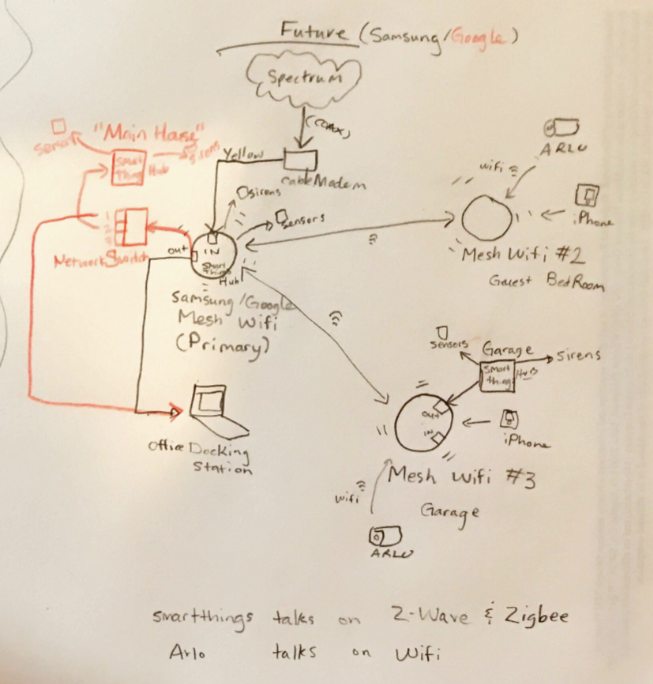 Future (Samsung/Google)
Spectrum
(coax)
Yellow
Cable Modem
"Main House"
sensors
Smart
Thing
Hub
siren
1
2
3
Network Switch
sirens
sensors
out
IN
Smart
Things
Hub
Samsung/Google
Mesh Wifi
(Primary)
Office Docking
Station
wifi
ARLO
iPhone
Mesh Wifi #2
Guest BedRoom
sensors
Garage
sirens
Smart
Thing
Hub
out
IN
iPhone
Mesh Wifi #3
Garage
wifi
ARLO
smartthings talks on Z-Wave & Zigbee
Arlo talks on Wifi